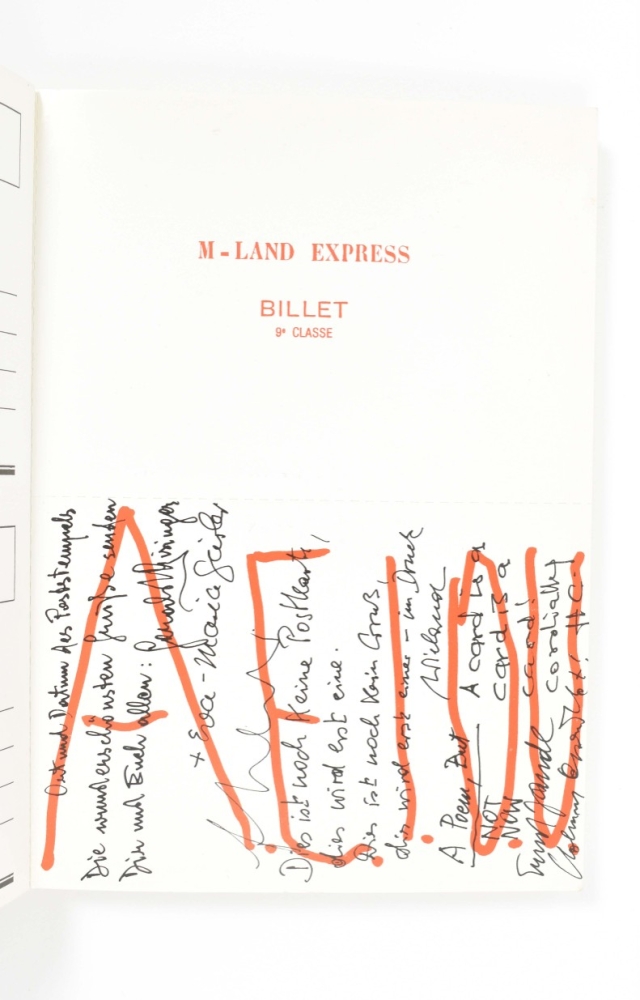 M-LAND EXPRESS
BILLET
9e CLASSE
A.E.I.O.U
Ort und Datum des Poststempels
Die wunderschönsten Grüße senden
Dir und Euch allen:
+ Eva-Maria Geisler
Dies ist noch keine Postkarte,
dies wird erst eine.
Dies ist noch kein Gruß,
dies wird erst einer – im Druck
Wieland
A Poem, But
A card is a
NOT
card is a
Now
card!
cordially